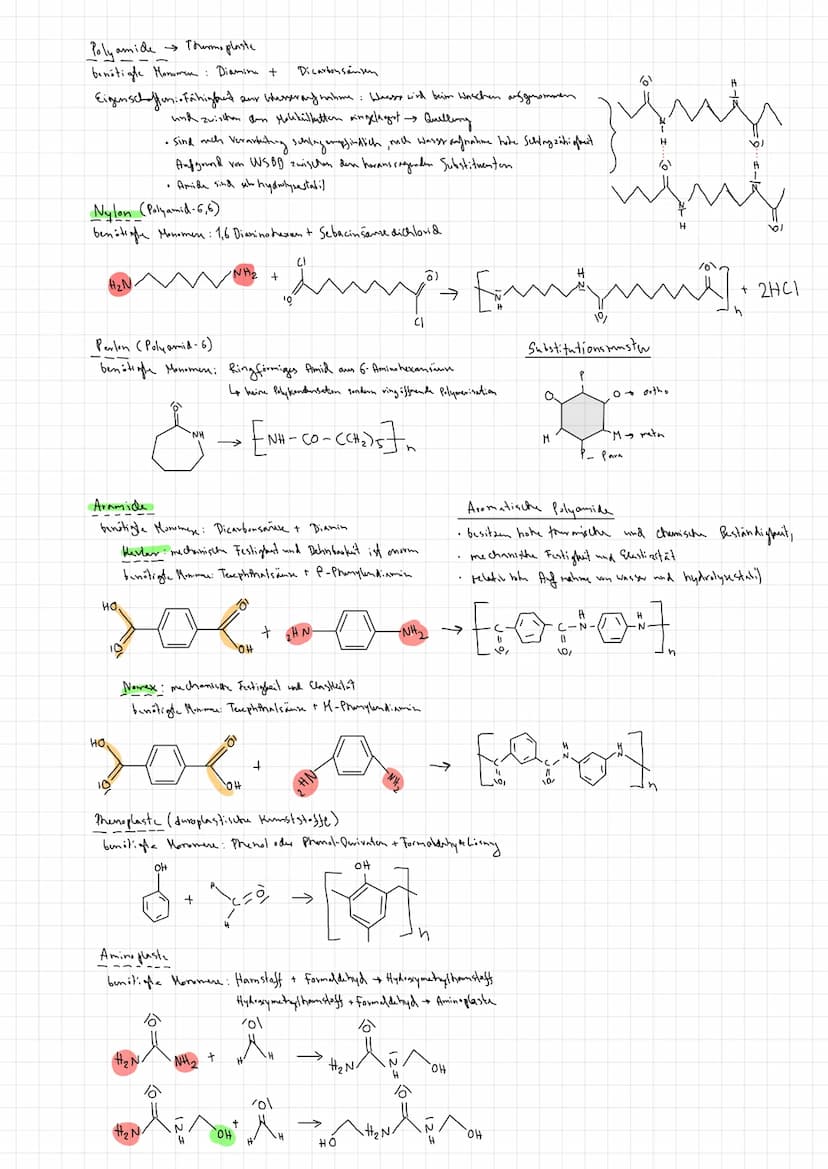 Polyamide → Thermoplaste
benötigte Monomere: Diamine + Dicarbonsäuren
Eigenschaften: • Fähigkeit zur Wasseraufnahme: Wasser wird beim Waschen aufgenommen
und zwischen den Molekülketten eingelagert → Quellung
• sind nach Verarbeitung schlagempfindlich, nach Wasseraufnahme hohe Schlagzähigkeit
Aufgrund von WSBB zwischen den herausragenden Substituenten
• Amide sind sehr hydrolysestabil
Nylon (Polyamid-6,6)
benötigte Monomere: 1,6 Diaminohexan + Sebacinsäuredichlorid
H₂N NH₂ + Cl O O Cl → [ N H H N O O ]n + 2HCl
Perlon (Polyamid-6)
benötigte Monomere: Ringförmiges Amid aus 6-Aminohexansäure
↳ keine Polykondensation sondern ringöffnende Polymerisation
O NH → [NH-CO-(CH₂)5]n
Substitutionsmuster
P
O O → ortho
M M → meta
P – Para
Aramide
benötigte Monomere: Dicarbonsäure + Diamin
Kevlar: mechanische Festigkeit und Dehnbarkeit ist enorm
benötigte Monomere: Terephthalsäure + P-Phenylendiamin
Aromatische Polyamide
• besitzen hohe thermische und chemische Beständigkeit,
• mechanische Festigkeit und Elastizität
• relativ hohe Aufnahme von Wasser und hydrolysestabil
HO O O OH + ₂HN NH₂ → [ C O C O H N H N ]n
Nomex: mechanische Festigkeit und Elastizität
benötigte Monomere: Terephthalsäure + M-Phenylendiamin
HO O O OH + ₂HN NH₂ → [ C O C O H N H N ]n
Phenoplaste (duroplastische Kunststoffe)
benötigte Monomere: Phenol oder Phenol-Derivaten + Formaldehyd Lösung
OH + R C=O H → [ OH ]n
Aminoplaste
benötigte Monomere: Harnstoff + Formaldehyd → Hydroxymethylharnstoff
Hydroxymethylharnstoff + Formaldehyd → Aminoplaste
H₂N O NH₂ + O H H → H₂N O N H OH
H₂N O N H OH + O H H → HO H₂N O N H OH